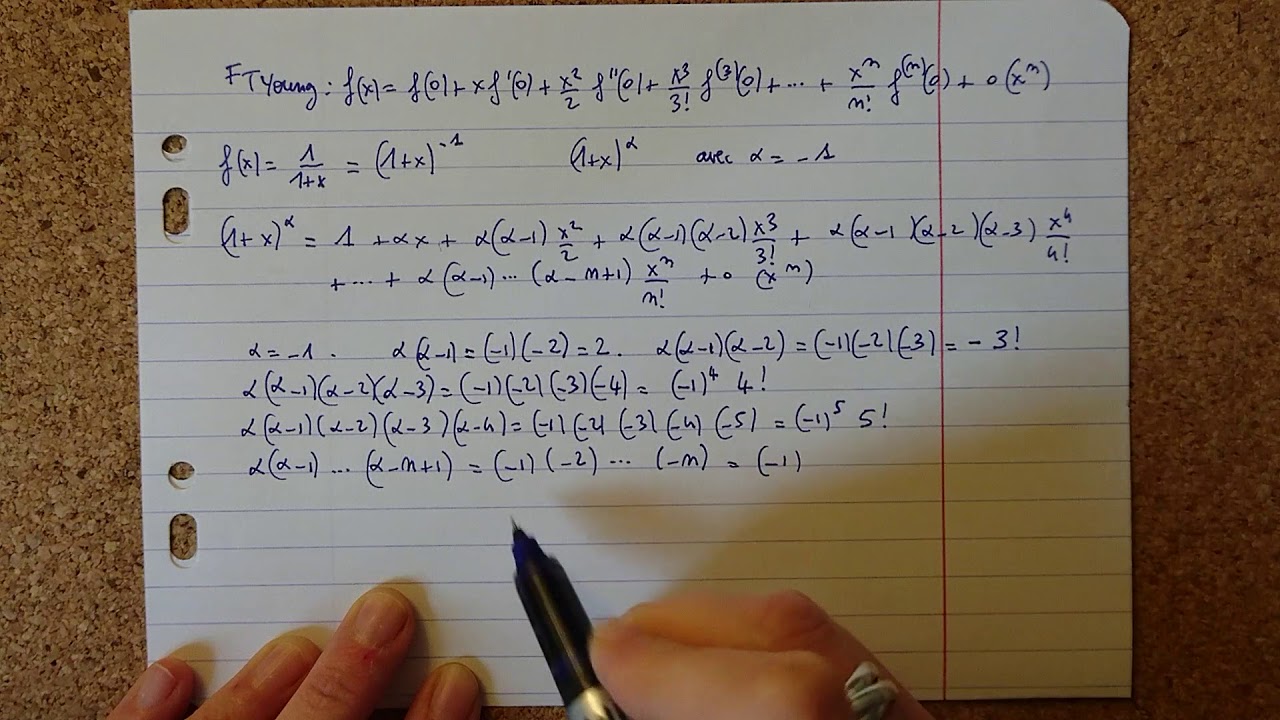 FTYoung : f(x) = f(0) + x f'(0) + x²/2 f''(0) + x³/3! f⁽³⁾(0) + ... + xⁿ/n! f⁽ⁿ⁾(0) + o(xⁿ)
f(x) = 1/(1+x) = (1+x)⁻¹ (1+x)^α avec α = -1
(1+x)^α = 1 + αx + α(α-1) x²/2 + α(α-1)(α-2) x³/3! + α(α-1)(α-2)(α-3) x⁴/4!
+ ... + α(α-1) ... (α-n+1) xⁿ/n! + o(xⁿ)
α = -1. α(α-1) = (-1)(-2) = 2. α(α-1)(α-2) = (-1)(-2)(-3) = - 3!
α(α-1)(α-2)(α-3) = (-1)(-2)(-3)(-4) = (-1)⁴ 4!
α(α-1)(α-2)(α-3)(α-4) = (-1)(-2)(-3)(-4)(-5) = (-1)⁵ 5!
α(α-1) ... (α-n+1) = (-1)(-2) ... (-n) = (-1)